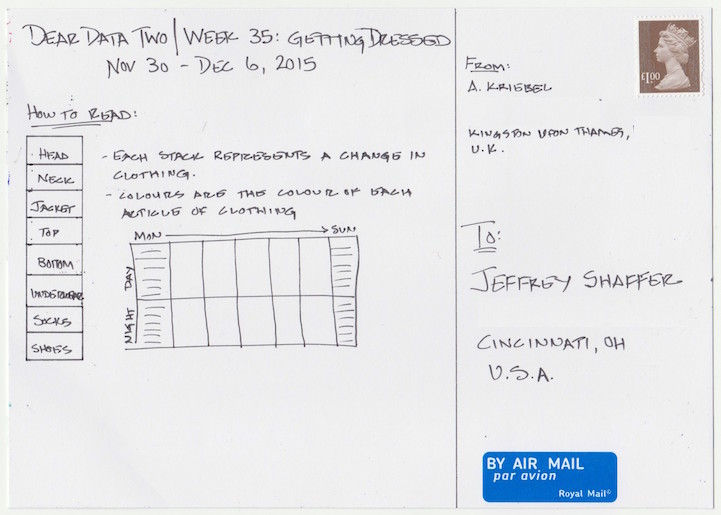 DEAR DATA TWO | WEEK 35: GETTING DRESSED
NOV 30 - DEC 6, 2015
HOW TO READ:
HEAD
NECK
JACKET
TOP
BOTTOM
UNDERWEAR
SOCKS
SHOES
- EACH STACK REPRESENTS A CHANGE IN
CLOTHING.
- COLOURS ARE THE COLOUR OF EACH
ARTICLE OF CLOTHING
MON SUN
DAY
NIGHT
FROM:
A. KRIEBEL
KINGSTON UPON THAMES,
U.K.
£1.00
TO:
JEFFREY SHAFFER
CINCINNATI, OH
U.S.A.
BY AIR MAIL
par avion
Royal Mail©